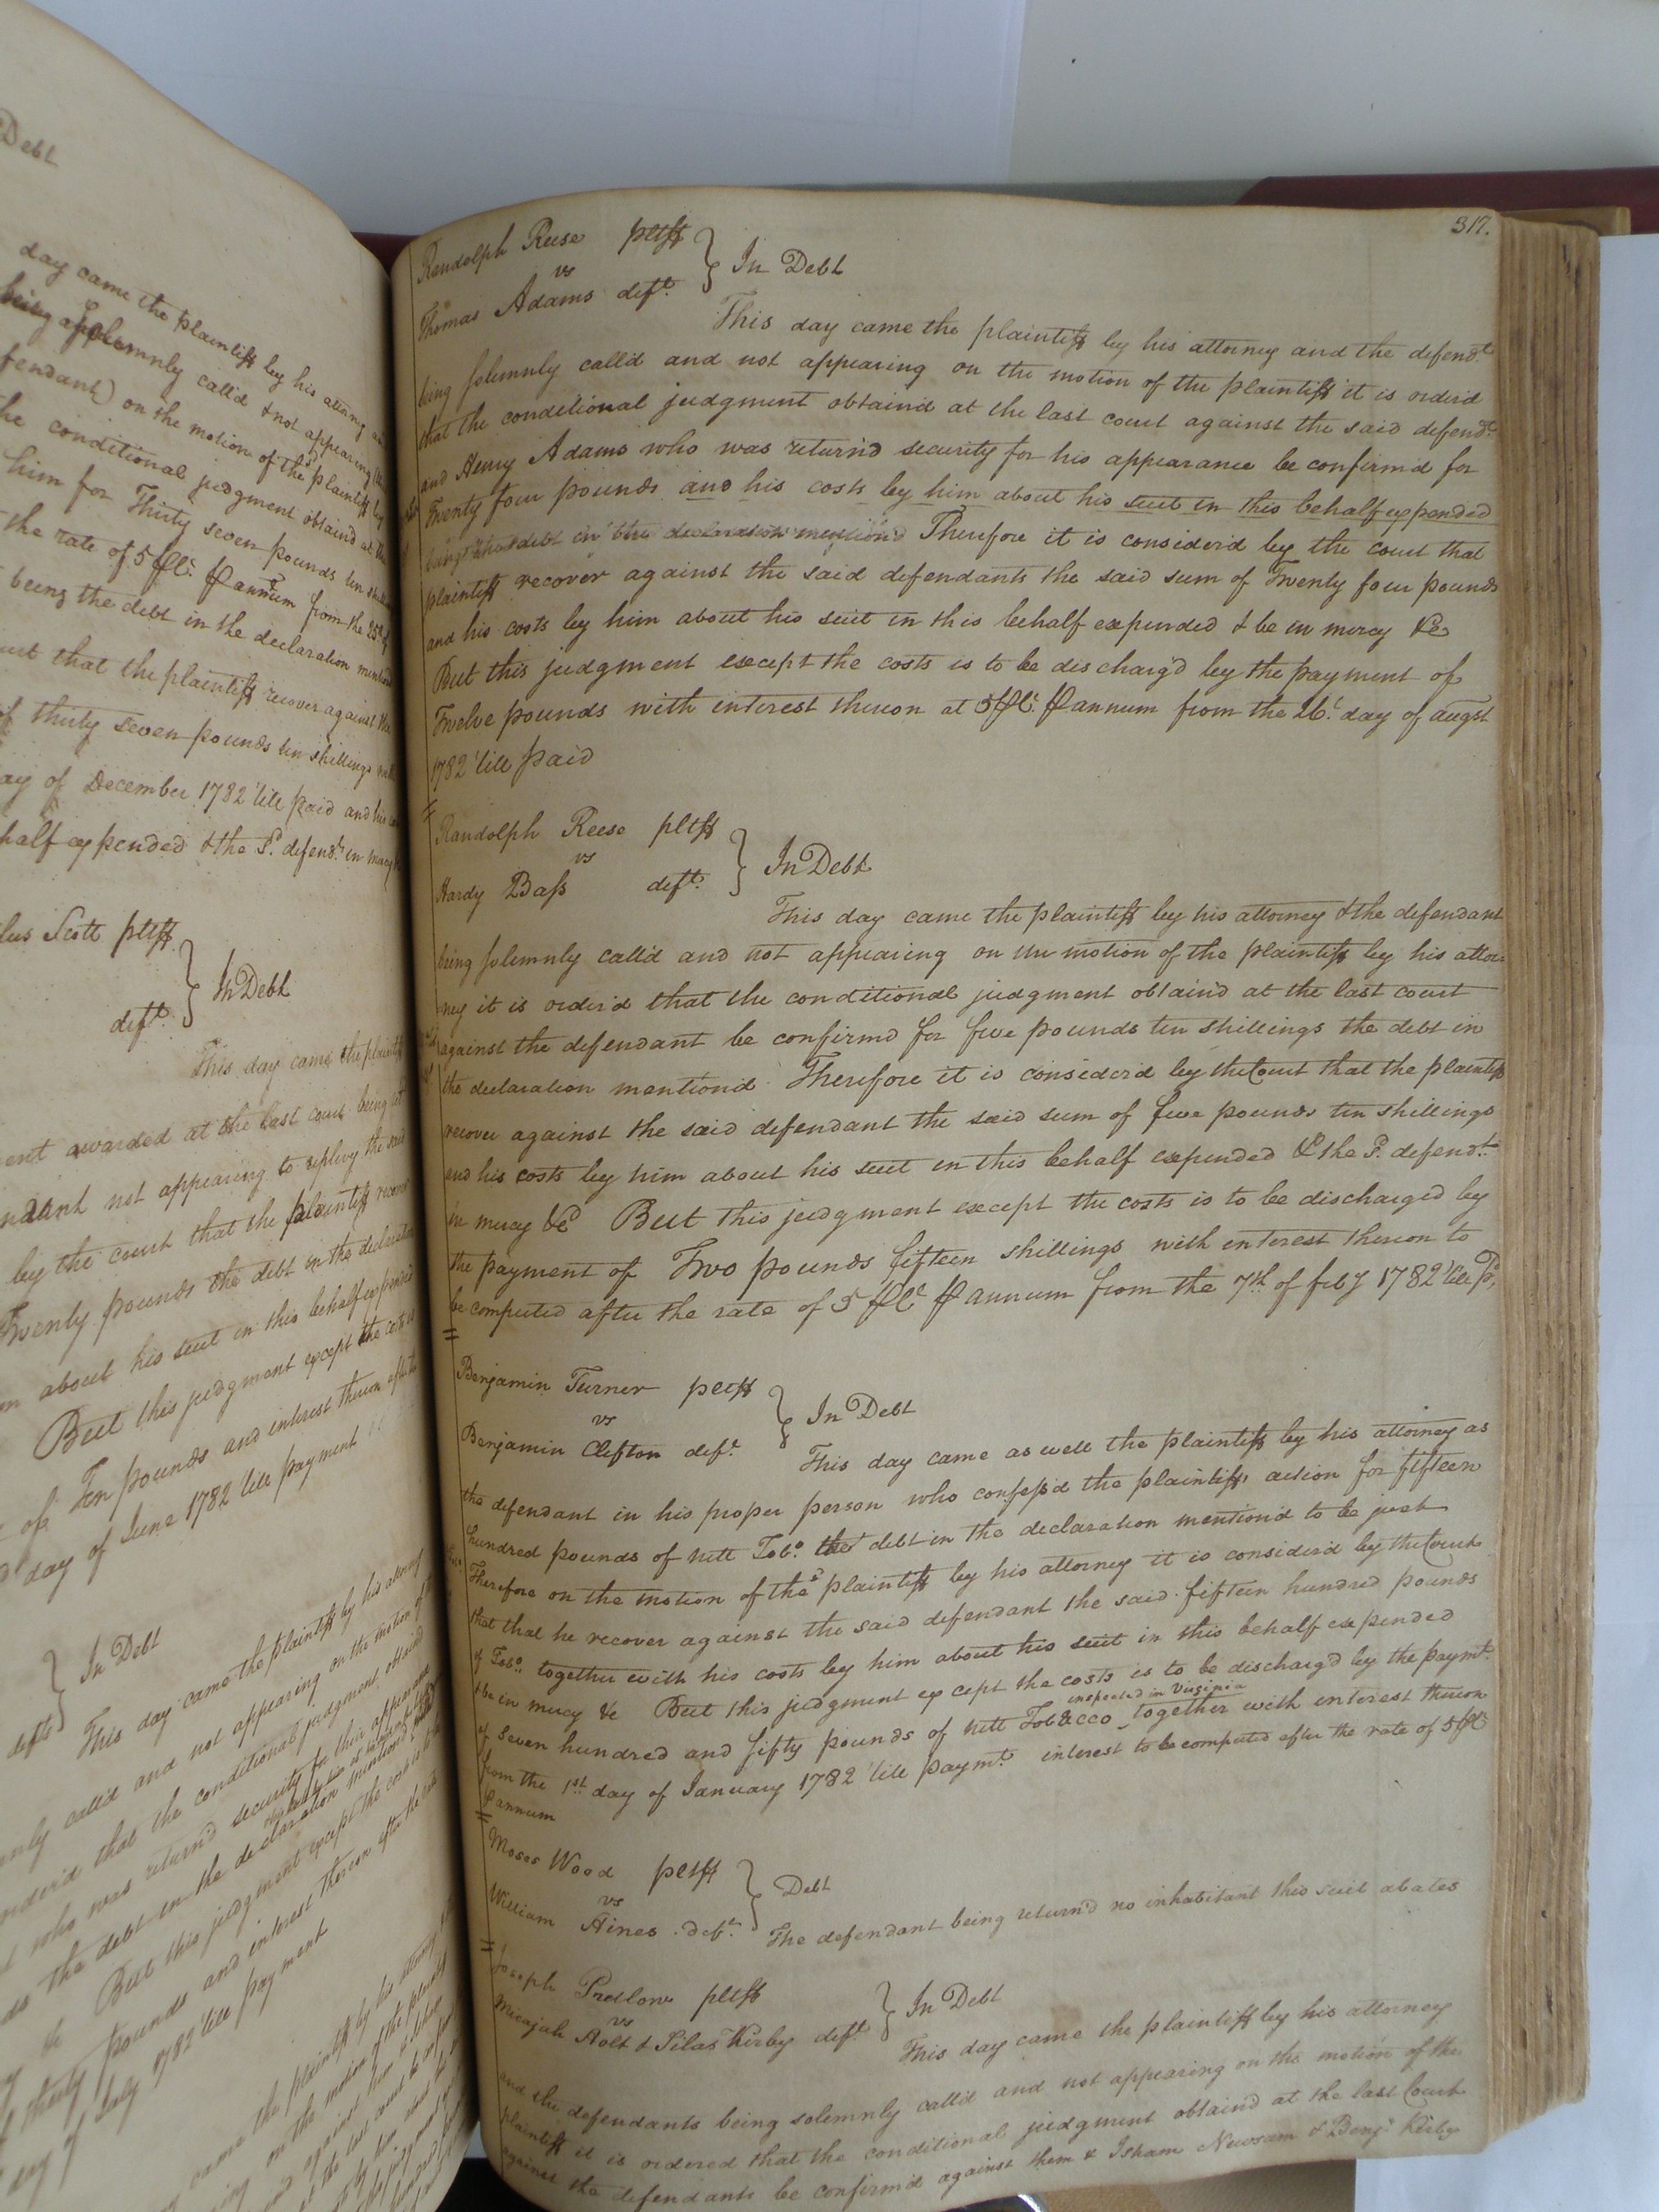 Debt
day came the plaintiff by his attorney
being solemnly call'd & not appearing
fendant) on the motion of the plaintiff by
the conditional judgment obtain'd at the
him for Thirty seven pounds ten
the rate of 5 PCt. P annum from the 25th
being the debt in the declaration
that the plaintiff recover against the
of thirty seven pounds ten shillings
ay of December 1782 'till paid and his
half expended & the Sd. defendt. in mercy
Scott pltff
deft.
In Debt
This day came the plaintiff
ent awarded at the last court being
ndant not appearing to replevy the said
by the court that the plaintiff recover
Twenty pounds the debt in the declaration
about his suit in this behalf expended
But this judgment except the costs is
of Ten pounds and interest thereon after the
day of June 1782 'till payment
defts
In Debt
This day came the plaintiff by his attorney
call'd and not appearing on the motion of
order'd that the conditional judgment obtain'd
who was return'd security for their appearance
the debt in the declaration mention'd
& But this judgment except the costs is to be
thirty pounds and interest thereon after the
day of July 1782 'till payment
came the plaintiff by his attorney
on the motion of the plaintiff
317.
Randolph Reese pltff
vs
Thomas Adams deft.
In Debt
This day came the plaintiff by his attorney and the defendt.
being solemnly call'd and not appearing on the motion of the plaintiff it is order'd
that the conditional judgment obtain'd at the last court against the said defendt.
and Henry Adams who was return'd security for his appearance be confirm'd for
Twenty four pounds and his costs by him about his suit in this behalf expended
being the debt in the declaration mention'd Therefore it is consider'd by the court that
plaintiff recover against the said defendants the said sum of Twenty four pounds
and his costs by him about his suit in this behalf expended & be in mercy &c
But this judgment except the costs is to be discharg'd by the payment of
Twelve pounds with interest thereon at 5 PCt. P annum from the 26t. day of augst
1782 'till paid
Randolph Reese pltff
vs
Hardy Bass deft.
In Debt
This day came the plaintiff by his attorney & the defendant
being solemnly call'd and not appearing on the motion of the plaintiff by his attor
ney it is order'd that the conditional judgment obtain'd at the last court
against the defendant be confirm'd for five pounds ten shillings the debt in
the declaration mention'd Therefore it is consider'd by the Court that the plaintiff
recover against the said defendant the said sum of five pounds ten shillings
and his costs by him about his suit in this behalf expended & the Sd. defendt.
in mercy &c But this judgment except the costs is to be discharged by
the payment of Two pounds fifteen shillings with interest thereon to
be computed after the rate of 5 PCt P annum from the 7th of feby 1782 'till pd,
Benjamin Turner pltff
vs
Benjamin Clifton deft.
In Debt
This day came as well the plaintiff by his attorney as
the defendant in his proper person who confess'd the plaintiffs action for fifteen
hundred pounds of nett Tobo. the debt in the declaration mention'd to be just
Therefore on the motion of the sd plaintiff by his attorney it is consider'd by the Court
that that he recover against the said defendant the said fifteen hundred pounds
of Tobo. together with his costs by him about his suit in this behalf expended
& be in mercy &c But this judgment except the costs is to be discharg'd by the paymt.
of seven hundred and fifty pounds of nett Tobacco inspected in Virginia together with interest thereon
from the 1st. day of January 1782 'till paymt. interest to be computed after the rate of 5 PCt
P annum
Moses Wood pltff
vs
William Hines deft.
Debt
The defendant being return'd no inhabitant this suit abates
Joseph Pretlow pltff
vs
Micajah Holt & Silas Kirby defts
In Debt
This day came the plaintiff by his attorney
and the defendants being solemnly call'd and not appearing on the motion of the
plaintiff it is ordered that the conditional judgment obtain'd at the last Court
against the defendants be confirm'd against them & Isham Newsum & Benja. Kirby